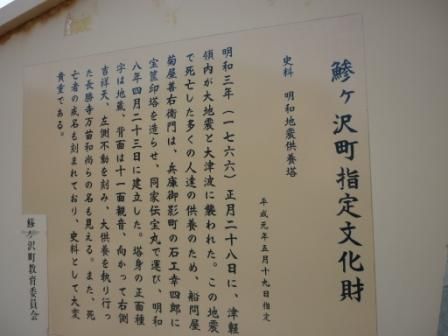 鰺ヶ沢町指定文化財
史料　明和地震供養塔
平成元年五月十九日指定
明和三年（一七六六）正月二十八日に、津軽
領内が大地震と大津波に襲われた。この地震
で死亡した多くの人達の供養のため、船問屋
菊屋善右衛門は、兵庫御影町の石工幸四郎に
宝篋印塔を造らせ、同家伝宝丸で運び、明和
八年四月二十三日に建立した。塔身の正面種
字は地蔵、背面は十一面観音、向かって右側
吉祥天、左側不動を刻み、大供養を執り行っ
た長勝寺万苗和尚らの名も見える。また、死
亡者の戒名も刻まれており、史料として大変
貴重である。
鰺ヶ沢町教育委員会